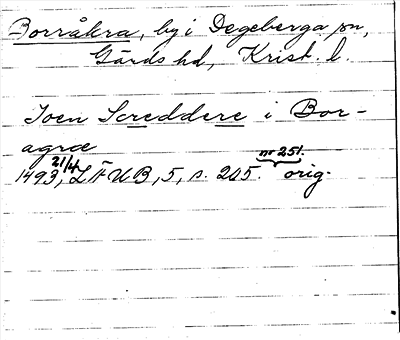 Borråkra, by i Degeberga sn,
Gärds hd, Krist. l.
Joen Screddere i Bor-
agræ
1493, 21/4, LÄUB, 5, s. 205. nr 251. orig.